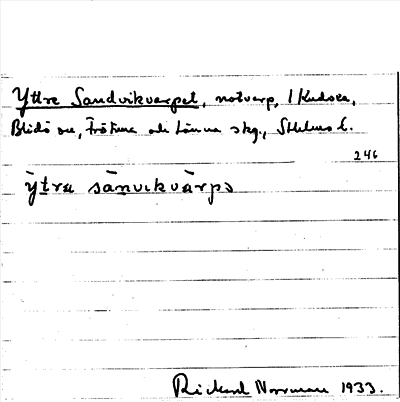 Yttre Sandvikvarpet, notvarp, / Kudoxa,
Blidö sn, Frötuna och Länna skg., Sthlms l.
246
ỳtrə sànvikvàrpə
Rickard Norrman 1933.